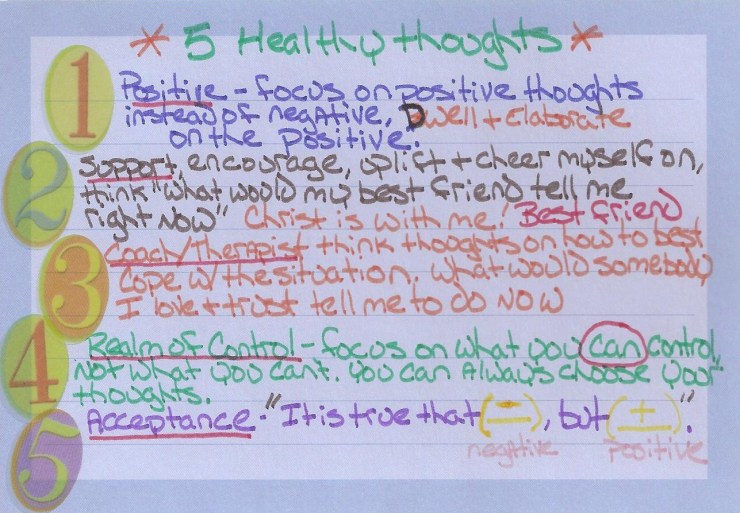 * 5 Healthy thoughts *
1 Positive - focus on positive thoughts
instead of negative, Dwell + Elaborate
on the positive.
2 Support, encourage, uplift + cheer myself on,
think "what would my best friend tell me
right now" Christ is with me! Best friend
3 Coach/Therapist think thoughts on how to best
Cope w/ the situation. what would somebody
I love + trust tell me to do NOW
4 Realm of Control - focus on what you can control,
Not what you can't. You can Always choose your
thoughts.
5 Acceptance - "It is true that (-), but (+)".
negative positive